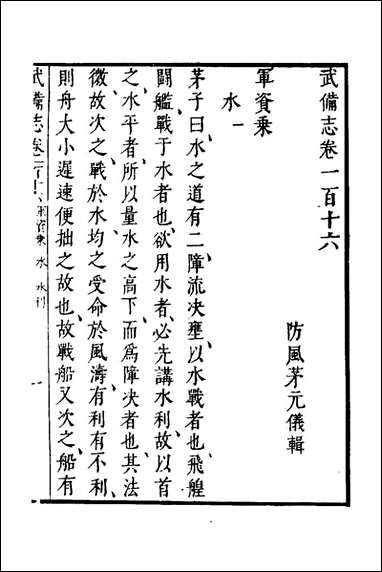 武備志卷一百十六
防風茅元儀輯
軍資乗
水一
茅子曰水之道有二障流决壅以水戰者也、飛艎
鬪艦戰于水者也、欲用水者、必先講水利、故以首
之、水平者、所以量水之高下、而爲障决者也、其法
微、故次之、戰於水均之受命於風濤、有利有不利、
則舟大小遲速便拙之故也、故戰船又次之、船有
武備志卷一百十六 軍資乗 水 水利 一